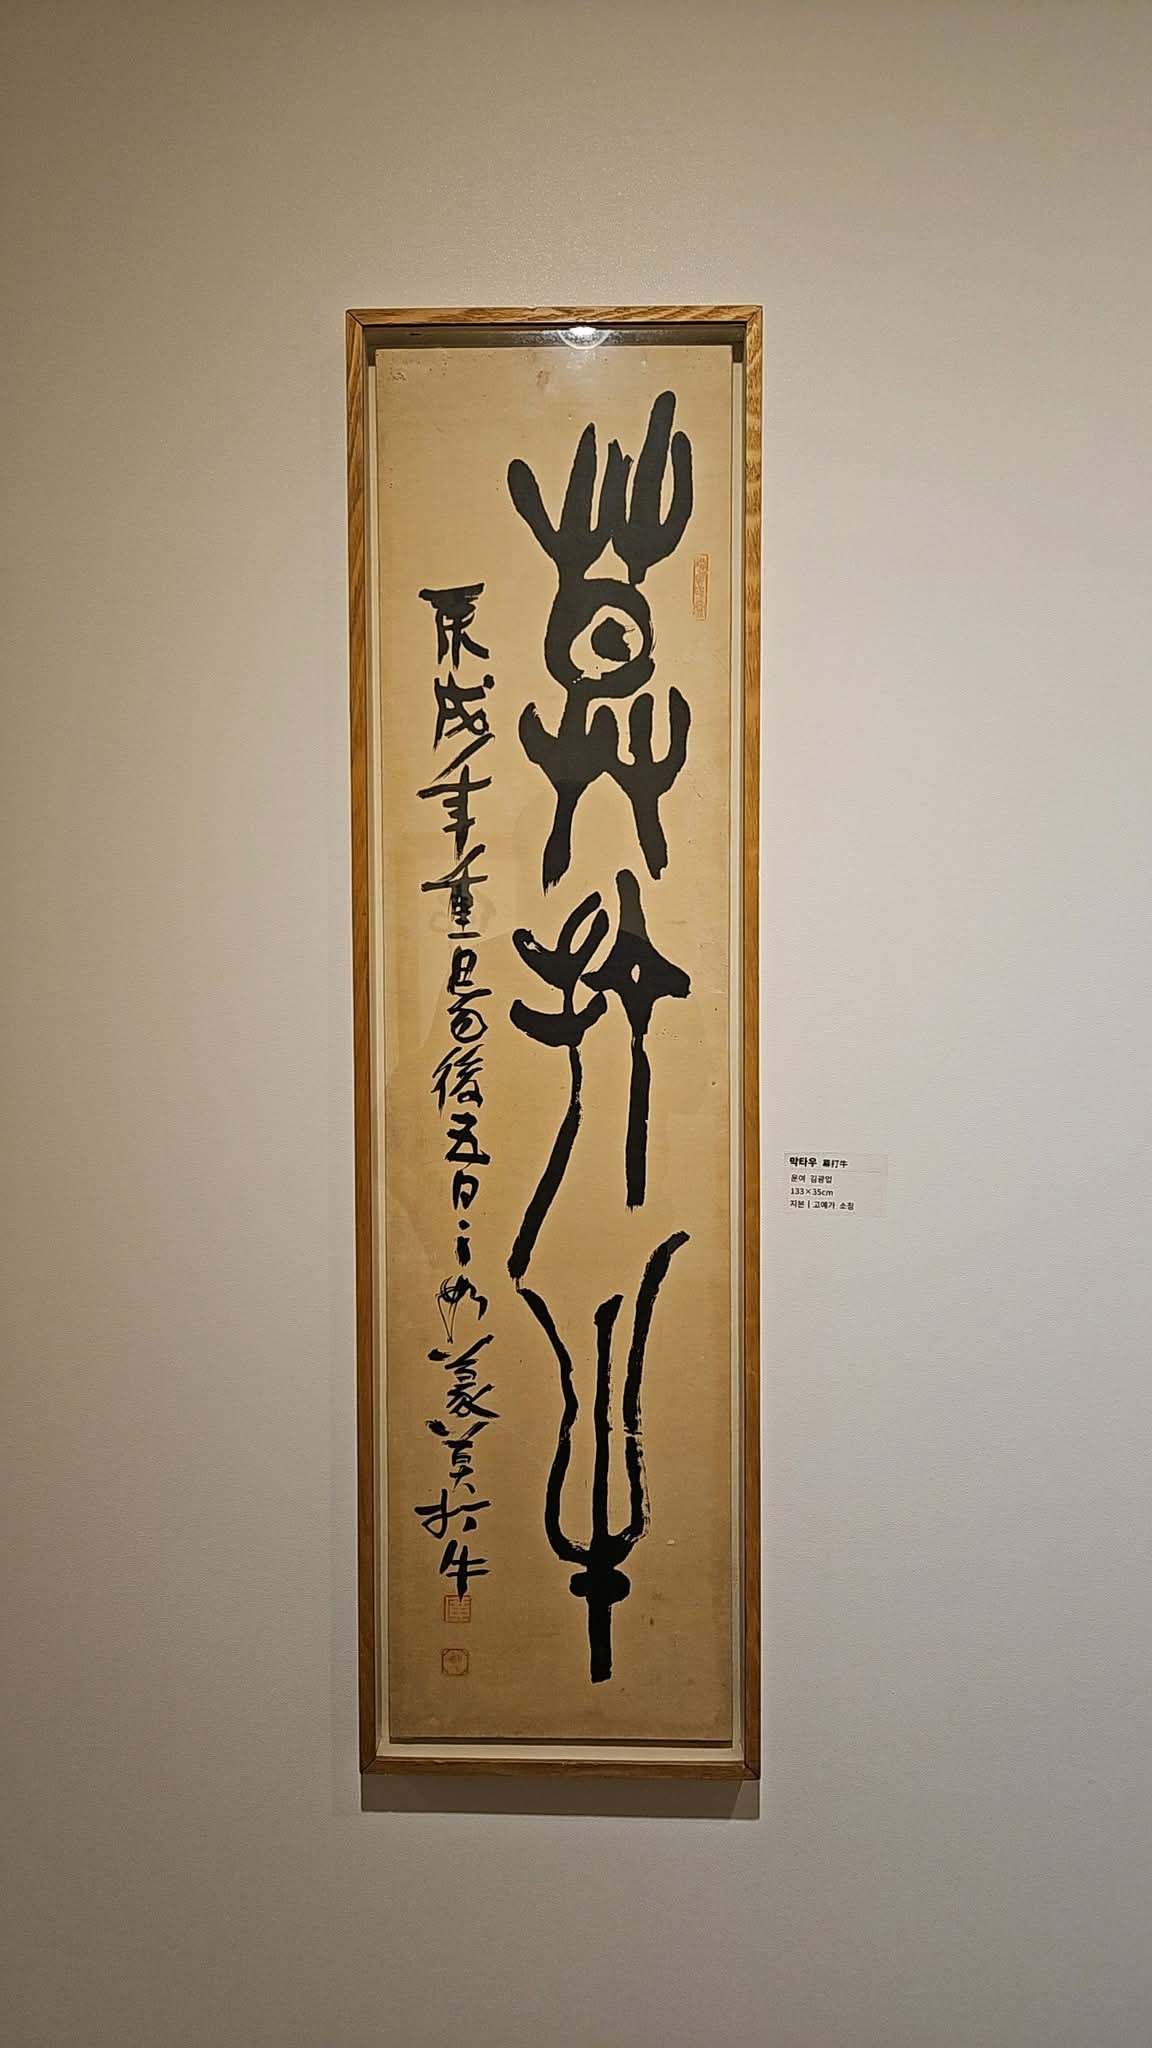 莫打牛
庚戌年重昜後五日云如篆莫打牛
막타우 莫打牛
운여 김광업
133×35cm
지본 | 고예가 소장